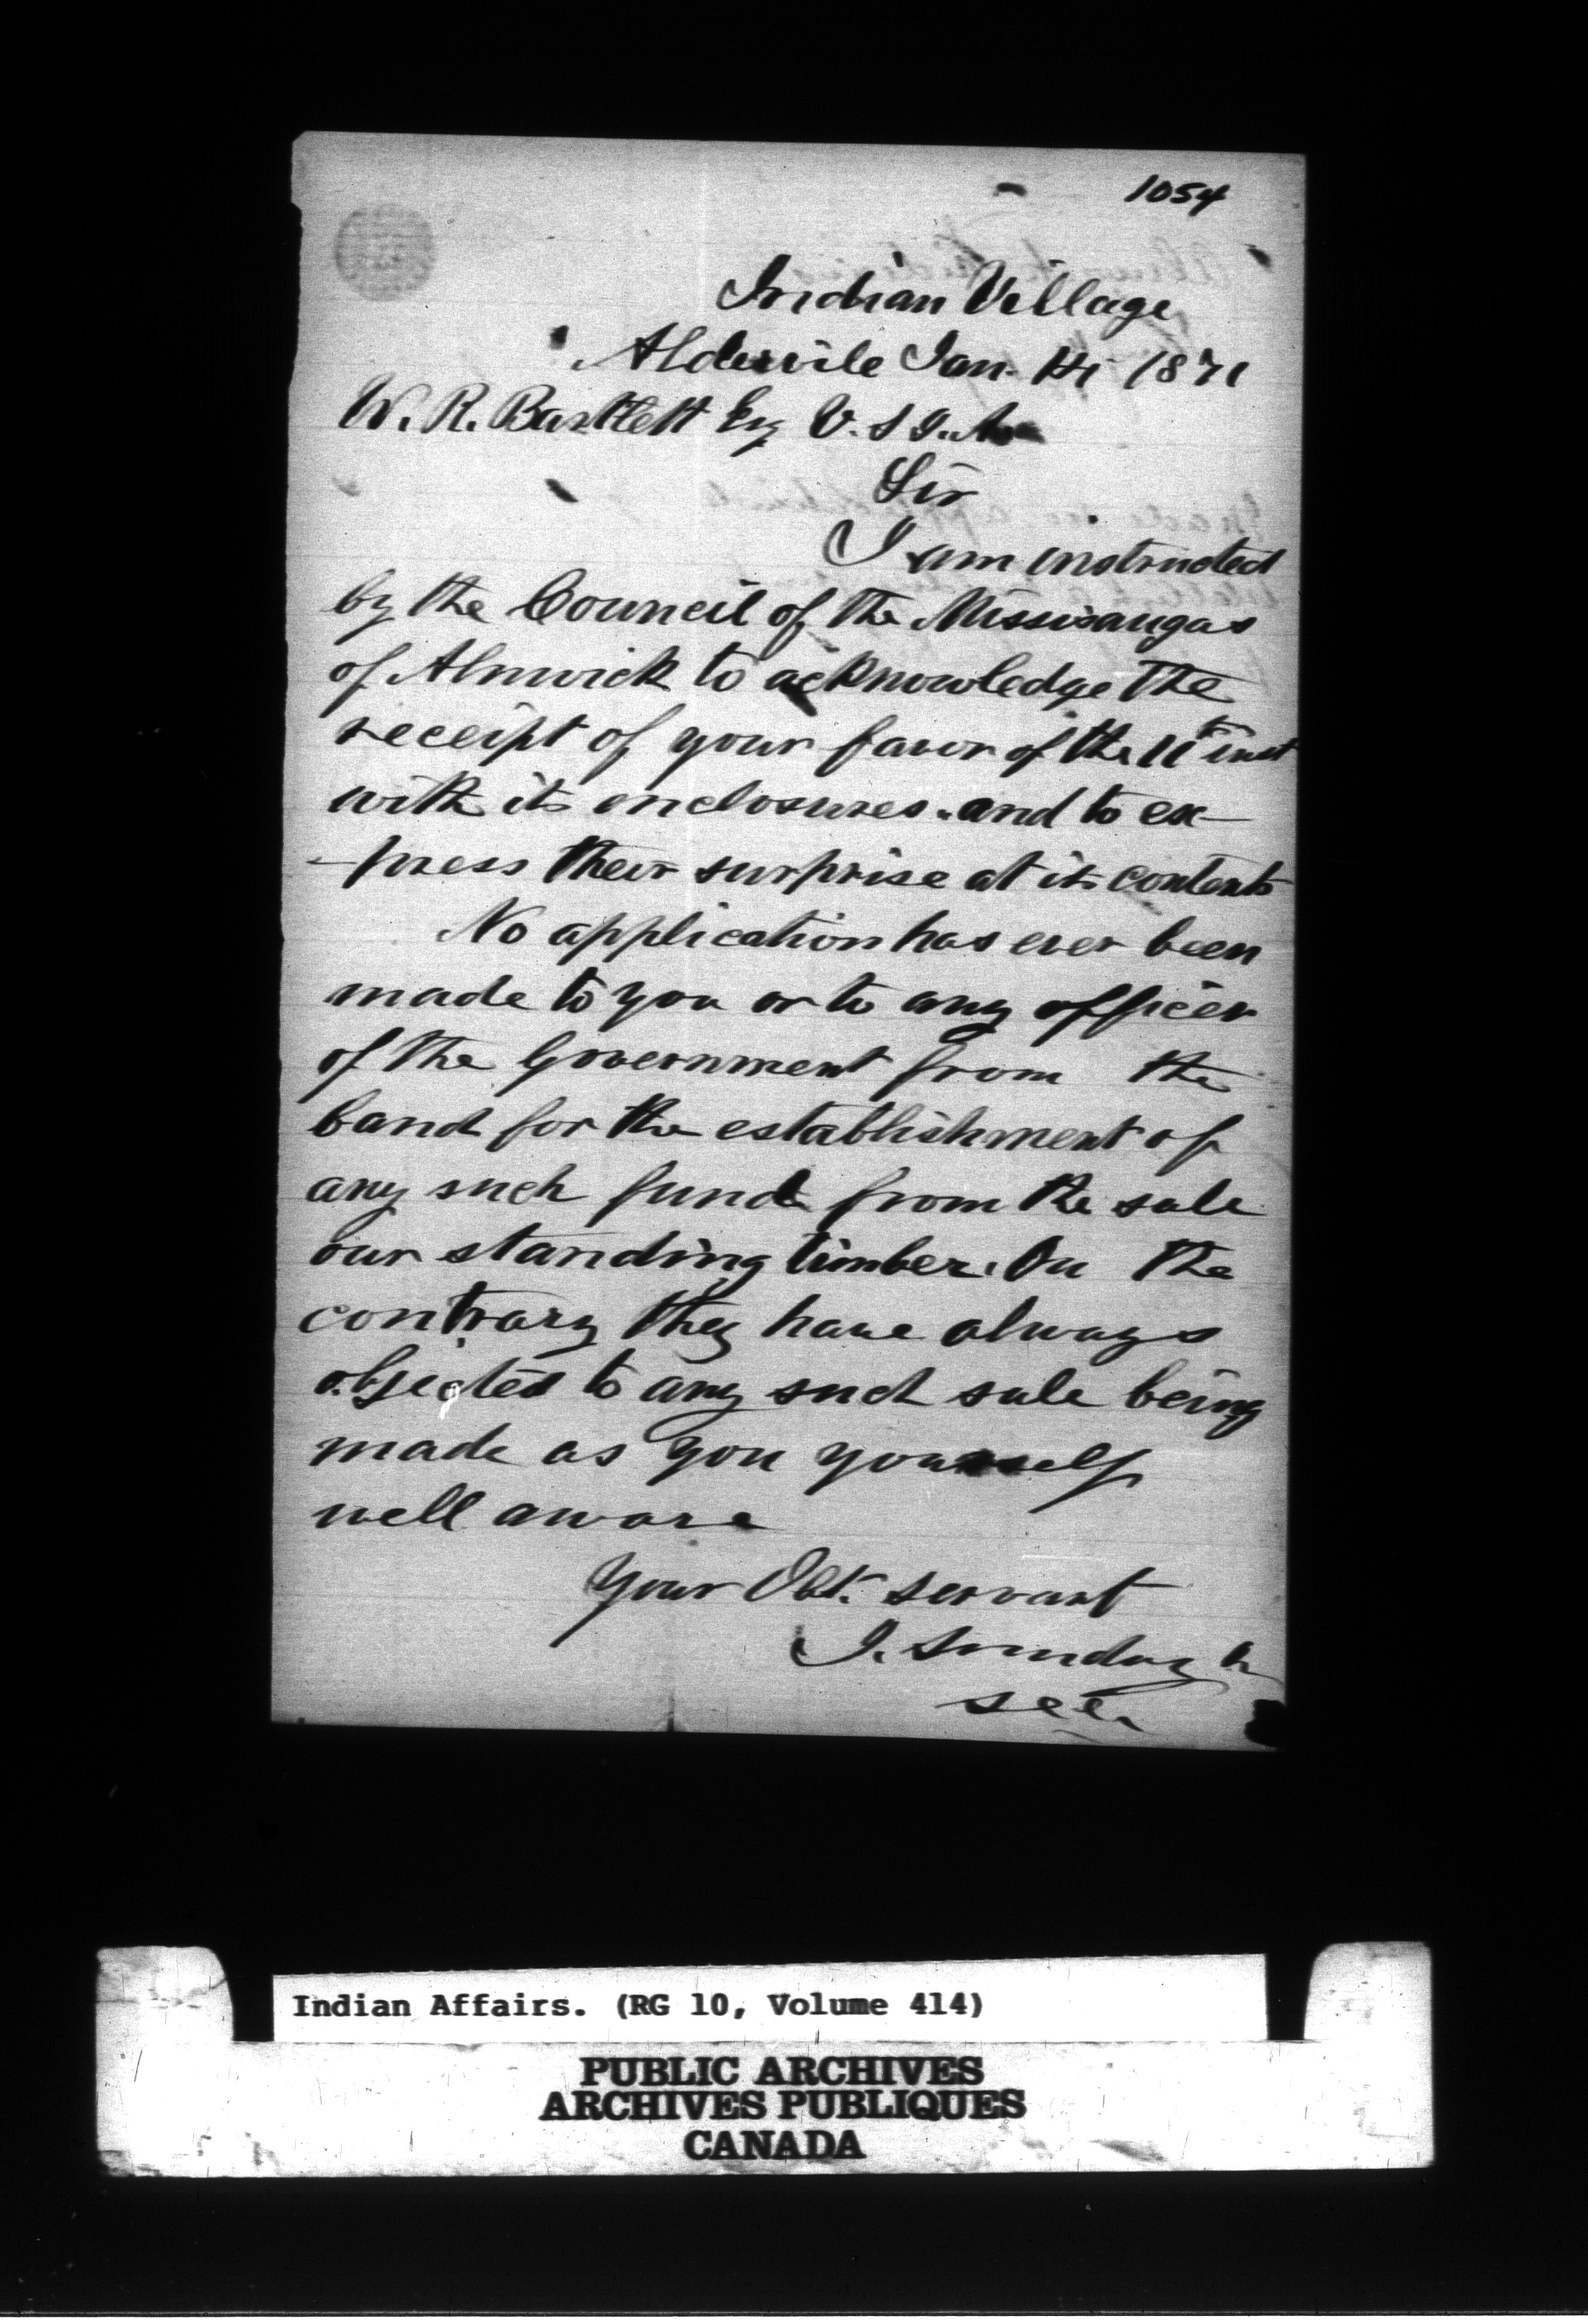 1054
Indian Village
Aldervile Jan. 14 1871
W. R. Bartlett Esq V. S I. A
Sir
I am instructed
by the Council of the Missisaugas
of Alnwick to acknowledge the
receipt of your favor of the 11th inst
with its enclosures. and to ex-
-press their surprise at its contents
No application has ever been
made to you or to any officer
of the Government from the
band for the establishment of
any such fund from the sale
our standing timber. On the
contrary they have always
objected to any such sale being
made as you yourself
well aware
Your Obt. servant
J. Sunday
sec.
Indian Affairs. (RG 10, Volume 414)
PUBLIC ARCHIVES
ARCHIVES PUBLIQUES
CANADA